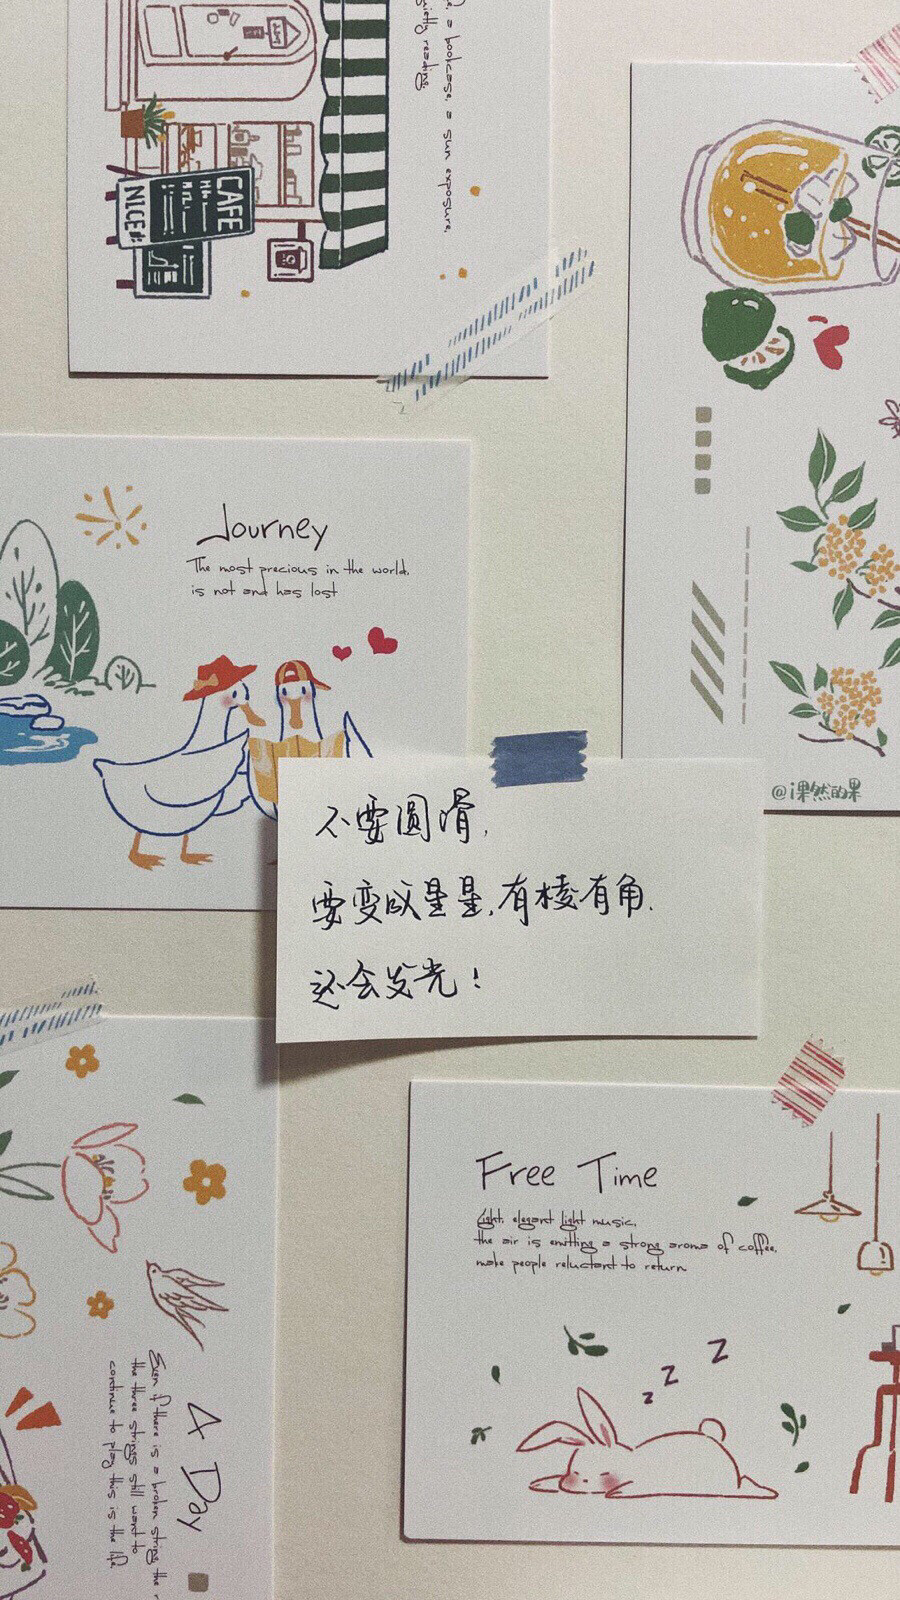 a bookcase, a sun exposure,
quietly reading
CAFE
NICE
Journey
The most precious in the world,
is not and has lost
@i果然的果
不要圆滑,
要变成星星,有棱有角.
还会发光!
Free Time
Light, elegant light music,
the air is emitting a strong aroma of coffee,
make people reluctant to return
z z z
A Day
Even if there is a broken string, the
the three strings still want to
continue to play this is the life